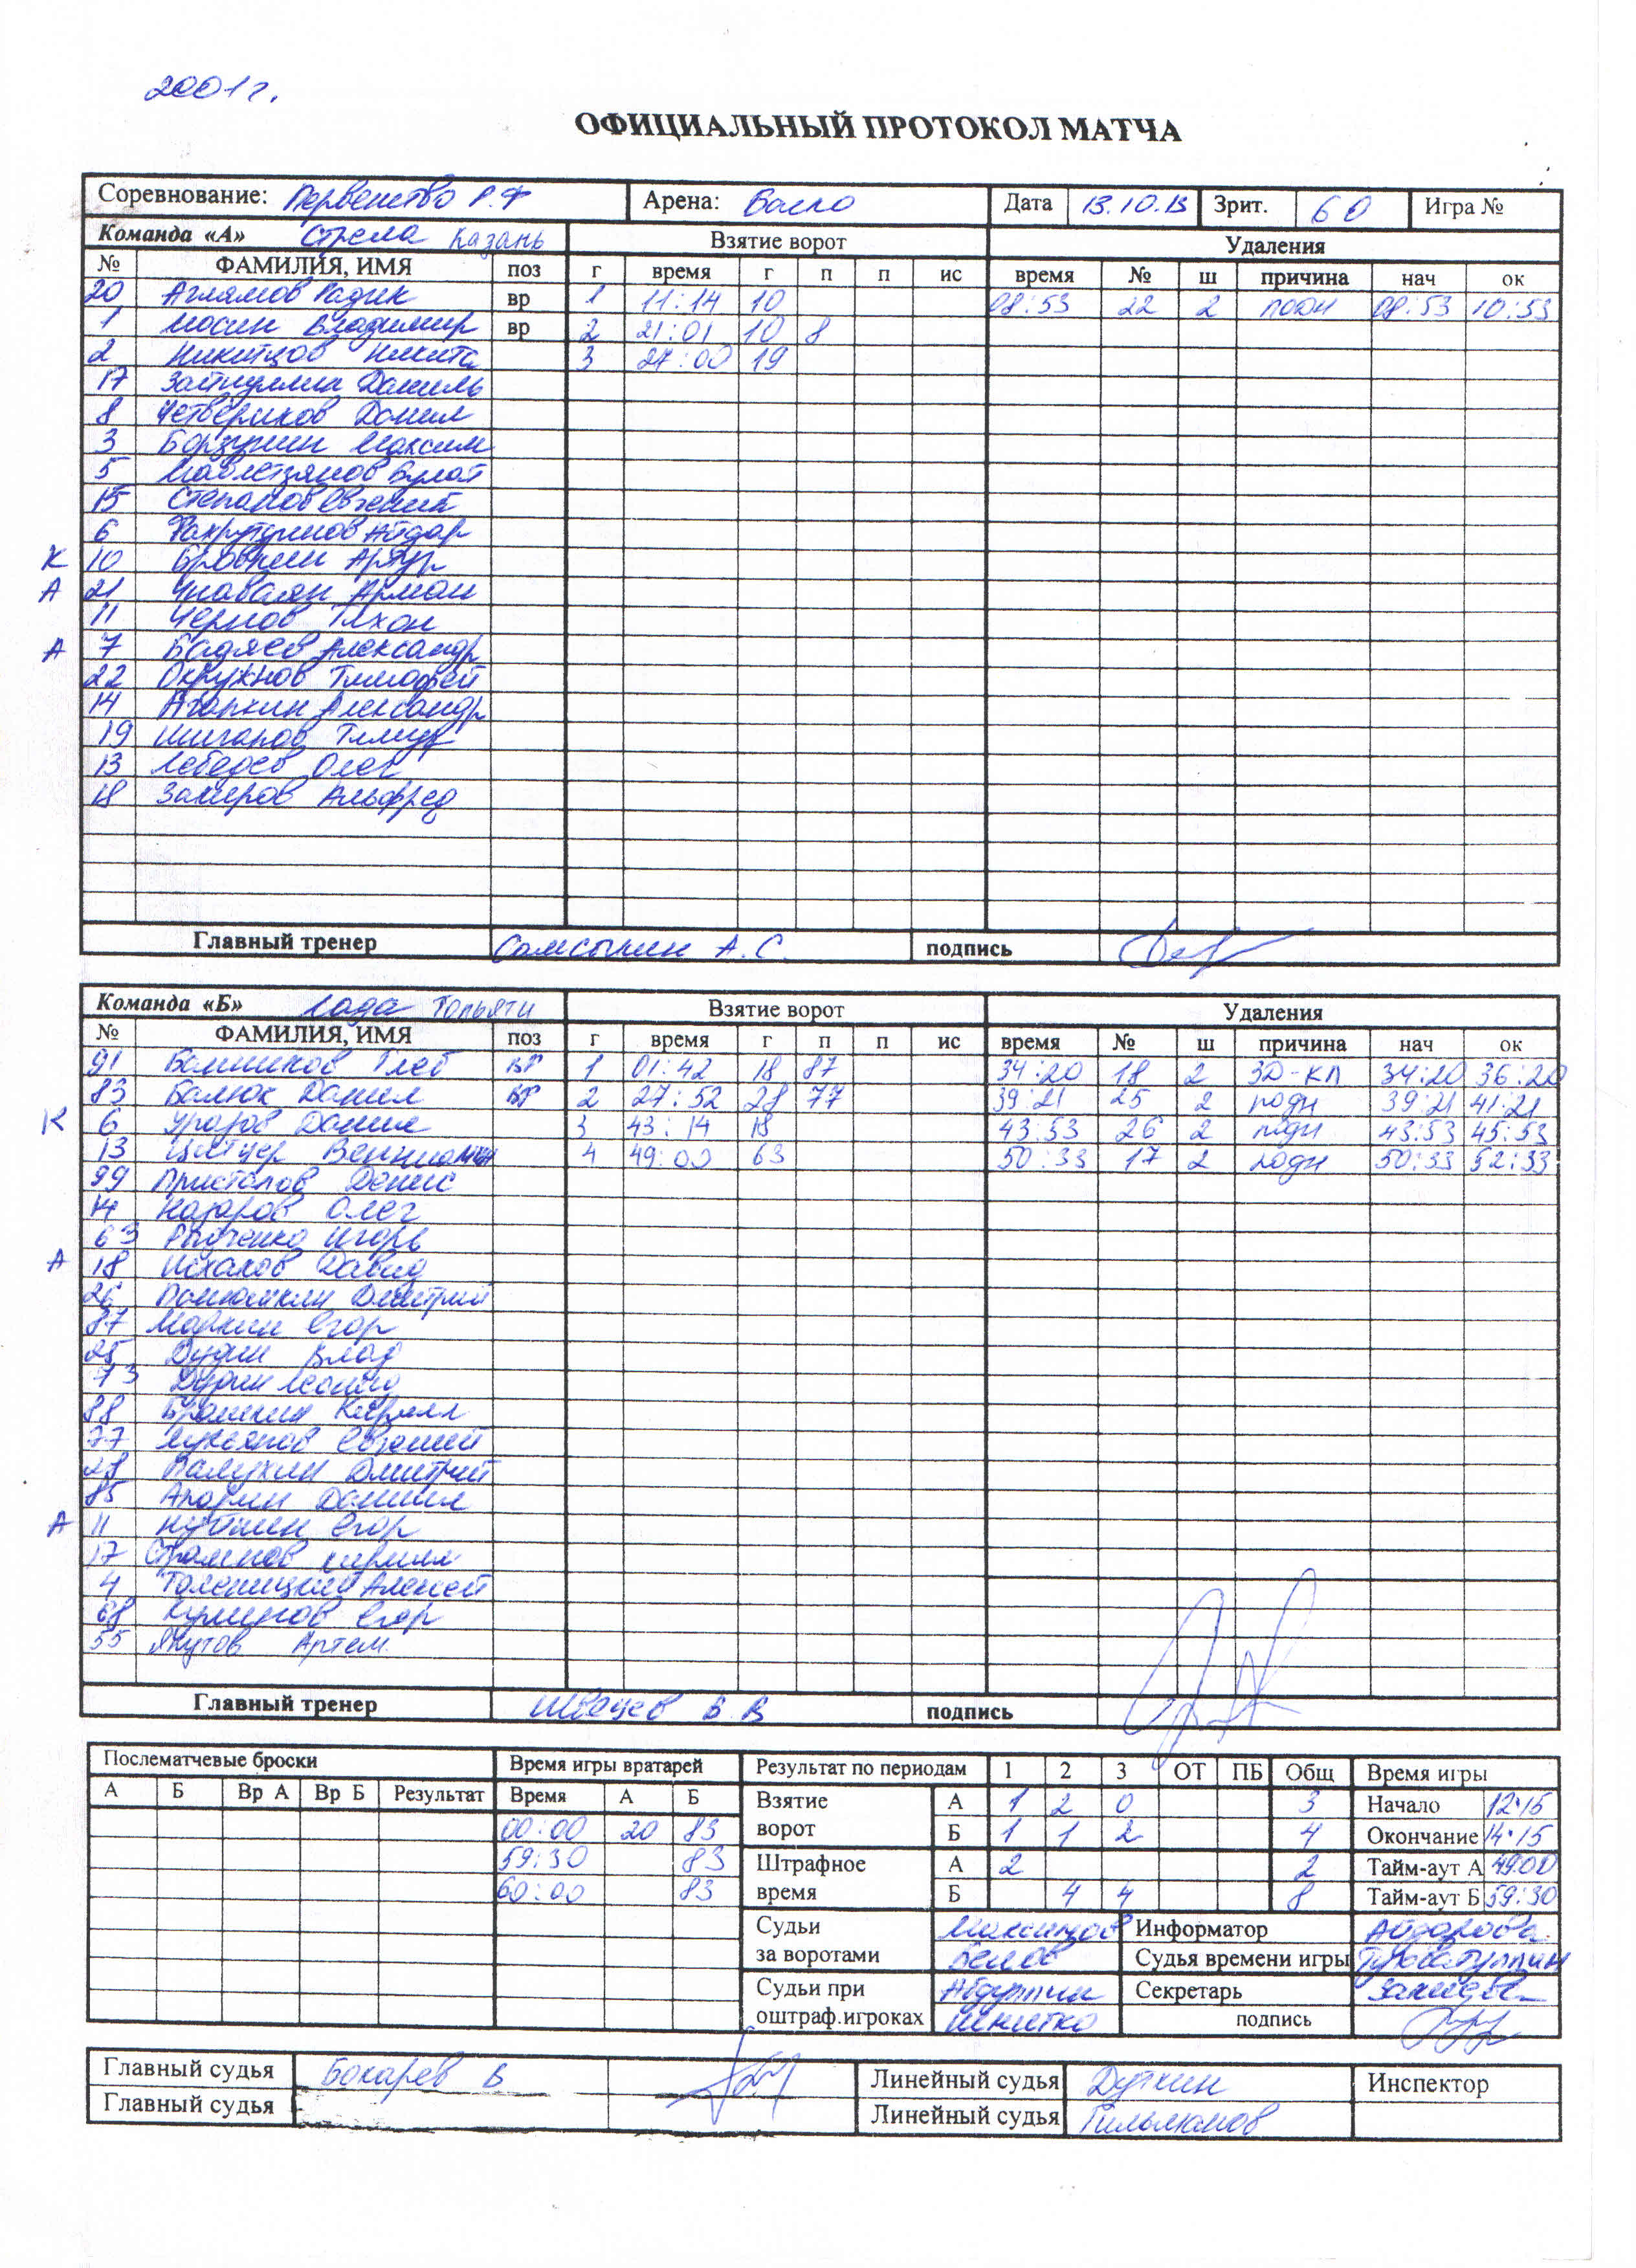 2001 г.
ОФИЦИАЛЬНЫЙ ПРОТОКОЛ МАТЧА
Соревнование: Первенство Р.Ф Арена: Дата 13.10.13 Зрит. 60 Игра №
Команда «А» Стрела Казань Взятие ворот Удаления
№ ФАМИЛИЯ, ИМЯ поз г время г п п ис время № ш причина нач ок
20 Аглямов Радик вр 1 11:14 10 08:53 22 2 подн 08:53 10:53
1 Мосин Владимир вр 2 21:01 10 8
2 Никитцов Никита 3 27:00 19
17 Зайнуллин Даниль
8 Четвериков Данил
3 Борзунин Максим
5 Мавлетзянов Булат
15 Степанов Евгений
6 Фахрутдинов Айдар
К 10 Бровкин Артур
А 21 Арман
11 Чернов Тихон
А 7 Бадяев Александр
22 Окружнов Тимофей
14 Агаркин Александр
19 Шигапов Тимур
13 Лебедев Олег
18 Закиров Альфред
Главный тренер Самсыкин А.С. подпись
Команда «Б» Лада Тольяти Взятие ворот Удаления
№ ФАМИЛИЯ, ИМЯ поз г время г п п ис время № ш причина нач ок
91 Глеб вр 1 01:42 18 87 34:20 18 2 ЗД-КЛ 34:20 36:20
83 Балюк Данил вр 2 27:52 28 77 39:21 25 2 подн 39:21 41:21
К 6 Данил 3 43:14 18 43:53 26 2 подн 43:53 45:53
13 Вениамин 4 49:00 63 50:33 17 2 подн 50:33 52:33
99 Присталов Денис
14 Назаров Олег
63 Игорь
А 18 Исхаков Давид
26 Дмитрий
87 Маркин Егор
25 Дудин Влад
73 Дудин Леонид
88 Кирилл
77 Лукьянов Евгений
28 Валухин Дмитрий
85 Апарин Даниил
А 11 Егор
17 Кирилл
4 Алексей
68 Егор
55 Якутов Артем
Главный тренер Швецев В.В подпись
Послематчевые броски Время игры вратарей Результат по периодам 1 2 3 ОТ ПБ Общ Время игры
А Б Вр А Вр Б Результат Время А Б Взятие ворот А 1 2 0 3 Начало 12:15
00:00 20 83 Б 1 1 2 4 Окончание 14:15
59:30 83 Штрафное время А 2 2 Тайм-аут А 49:00
60:00 83 Б 4 4 8 Тайм-аут Б 59:30
Судьи за воротами Максимов Информатор
Белов Судья времени игры
Судьи при оштраф.игроках Абдуллин Секретарь
подпись
Главный судья Бокарев В Линейный судья Дуткин Инспектор
Главный судья Линейный судья Гильманов